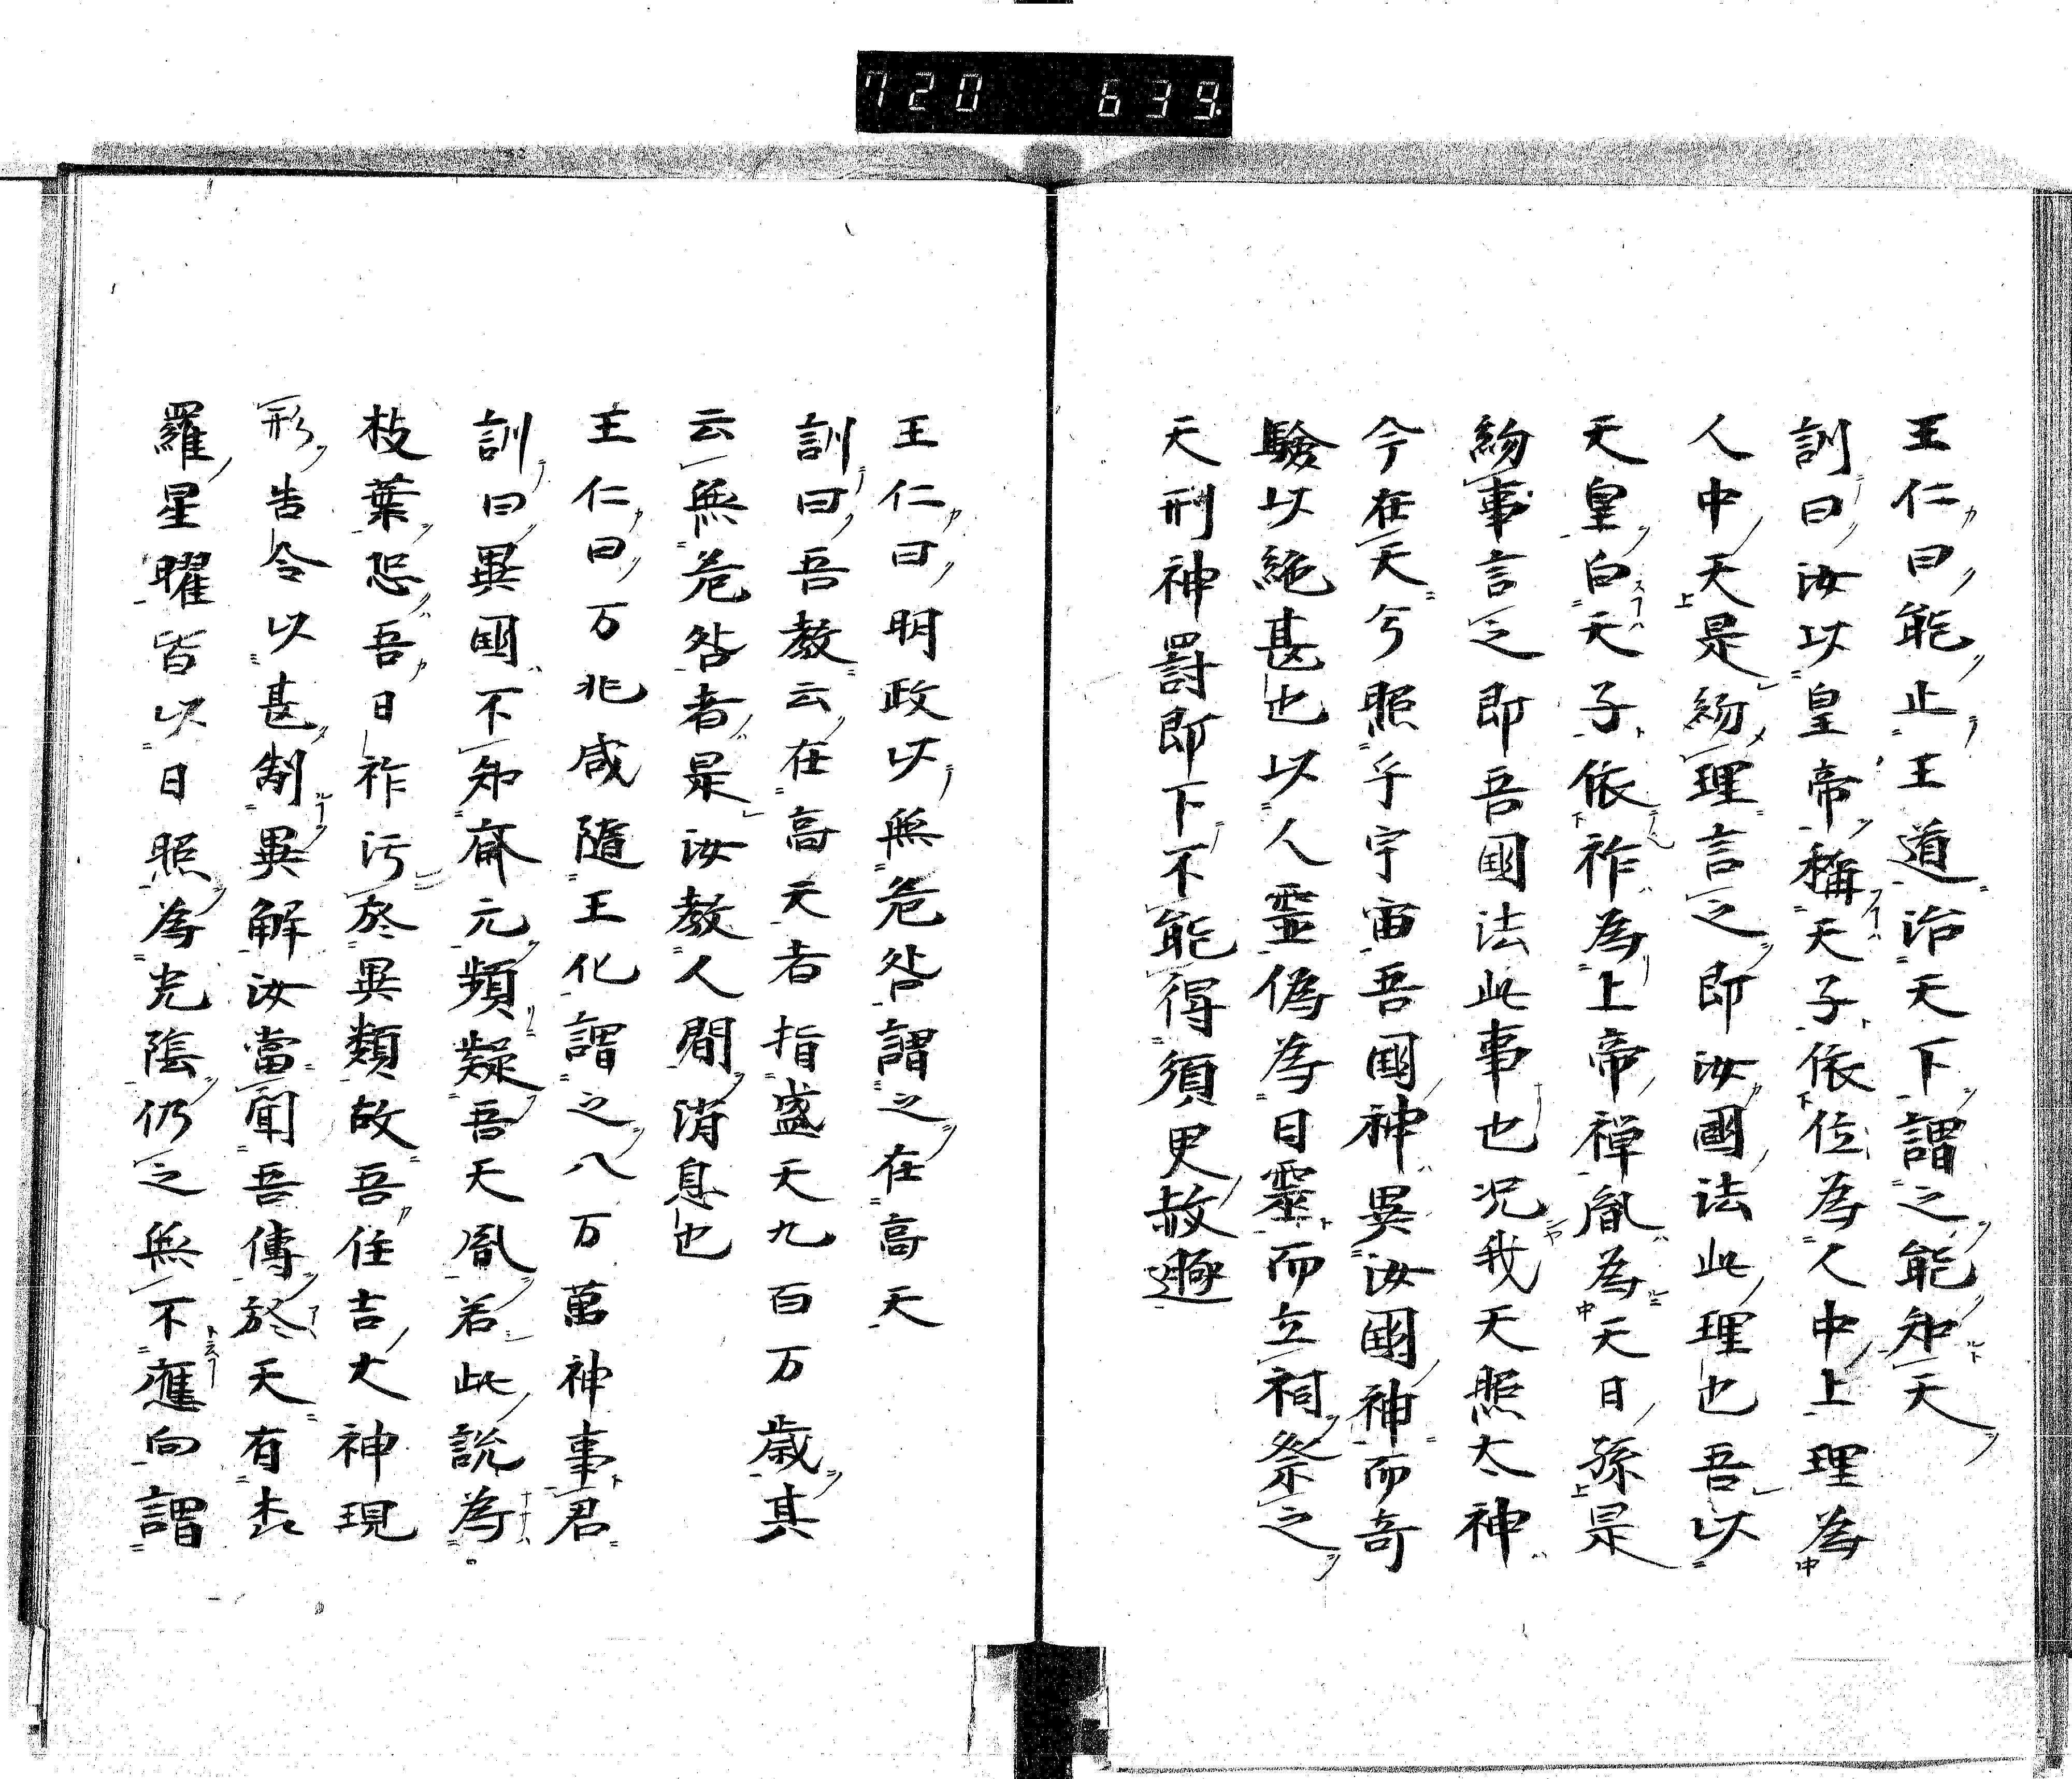 720 639
王仁曰能止王道治天下謂之能知天
訓曰汝以皇帝稱天子依位為人中上理為
人中天是紛理言之即汝國法此理也吾以
天皇白天子依祚為上帝禪胤為天日孫是
紛事言之即吾國法此事也况我天照太神
今在天今照乎宇宙吾國神異汝國神而奇
驗以絶甚也以人靈偽為日靈而立祠祭之
天刑神罸即下不能得須更赦
王仁曰明政以無危咎謂之在高天
訓曰吾教云在高天者指盛天九百万歳其
云無危咎者是汝教人間消息也
王仁曰万兆咸隨王化謂之八万萬神事君
訓曰異國不知齋元頻疑吾天胤若此説為
枝葉恐吾日祚污於異類故吾住吉大神現
形告令以甚制異解汝當聞吾傳於天有
羅星曜皆以日照為光陰仍之無不應向謂